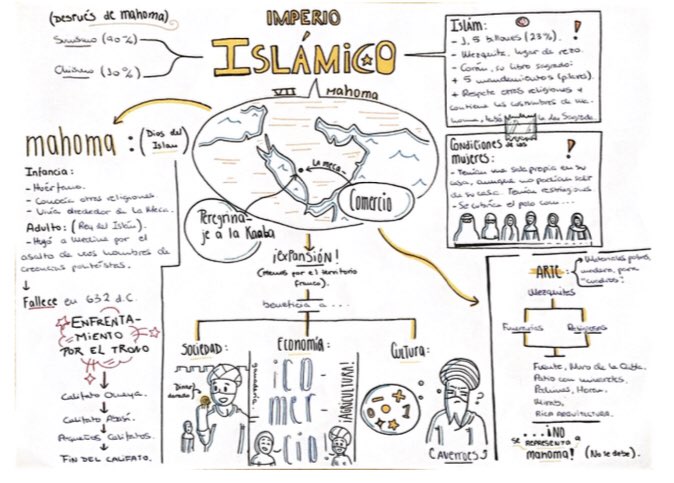 IMPERIO
ISLÁMICO
VII
MAHOMA
(Después de mahoma)
Sunismo (90%)
Chiismo (10%)
mahoma: (Dios del Islam)
Infancia:
- Huérfano.
- Conocía otras religiones.
- Vivía alrededor de la Meca.
Adulto: (Rey del Islám).
- Huyó a Medina por el
asalto de unos hombres de
creencias politeístas.
Fallece en 632 d.C.
ENFRENTA-
MIENTO
POR EL TRONO
Califato Omeya.
Califato Abasí.
Pequeños Califatos.
FIN DEL CALIFATO.
La Meca
Comercio
Peregrina-
je a la Kaaba
¡EXPANSIÓN!
(menos por el territorio
franco).
beneficia a ...
SOCIEDAD:
Dinero
dorado
Economía:
ganadería
¡CO-
MER-
cio!
¡AGRICULTURA!
Cultura:
CAVERROES
Islám:
- 1, 5 billones (23%).
- Mezquita, lugar de rezo.
- Corán, su libro sagrado:
+ 5 mandamientos (pilares).
+ Respete otras religiones +
contiene las costumbres de Ma-
homa,
Condiciones de las
mujeres:
- Tenían una sala propia en su
casa, aunque no podían salir
de su casa. Tenían restricciones
- Se cubrían el pelo con...
ARTE:
Materiales pobres,
madera, para
"cuadros".
Mezquitas
Funerarias
Religiosas
Fuente, Muro de la Qibla.
Patio con minaretes.
Palmeras,
RICA ARQUITECTURA.
...¡NO
SE REPRESENTA A
MAHOMA! (No se debe).